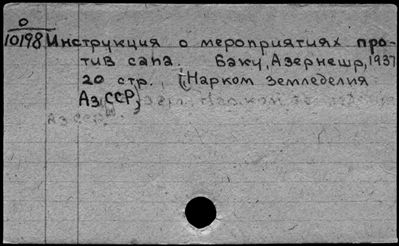 О
10198 Инструкция о мероприятиях про-
тив сапа. Баку, Азернешр, 1937
20 стр., (Нарком земледелия
Аз.ССР)
Аз ССР